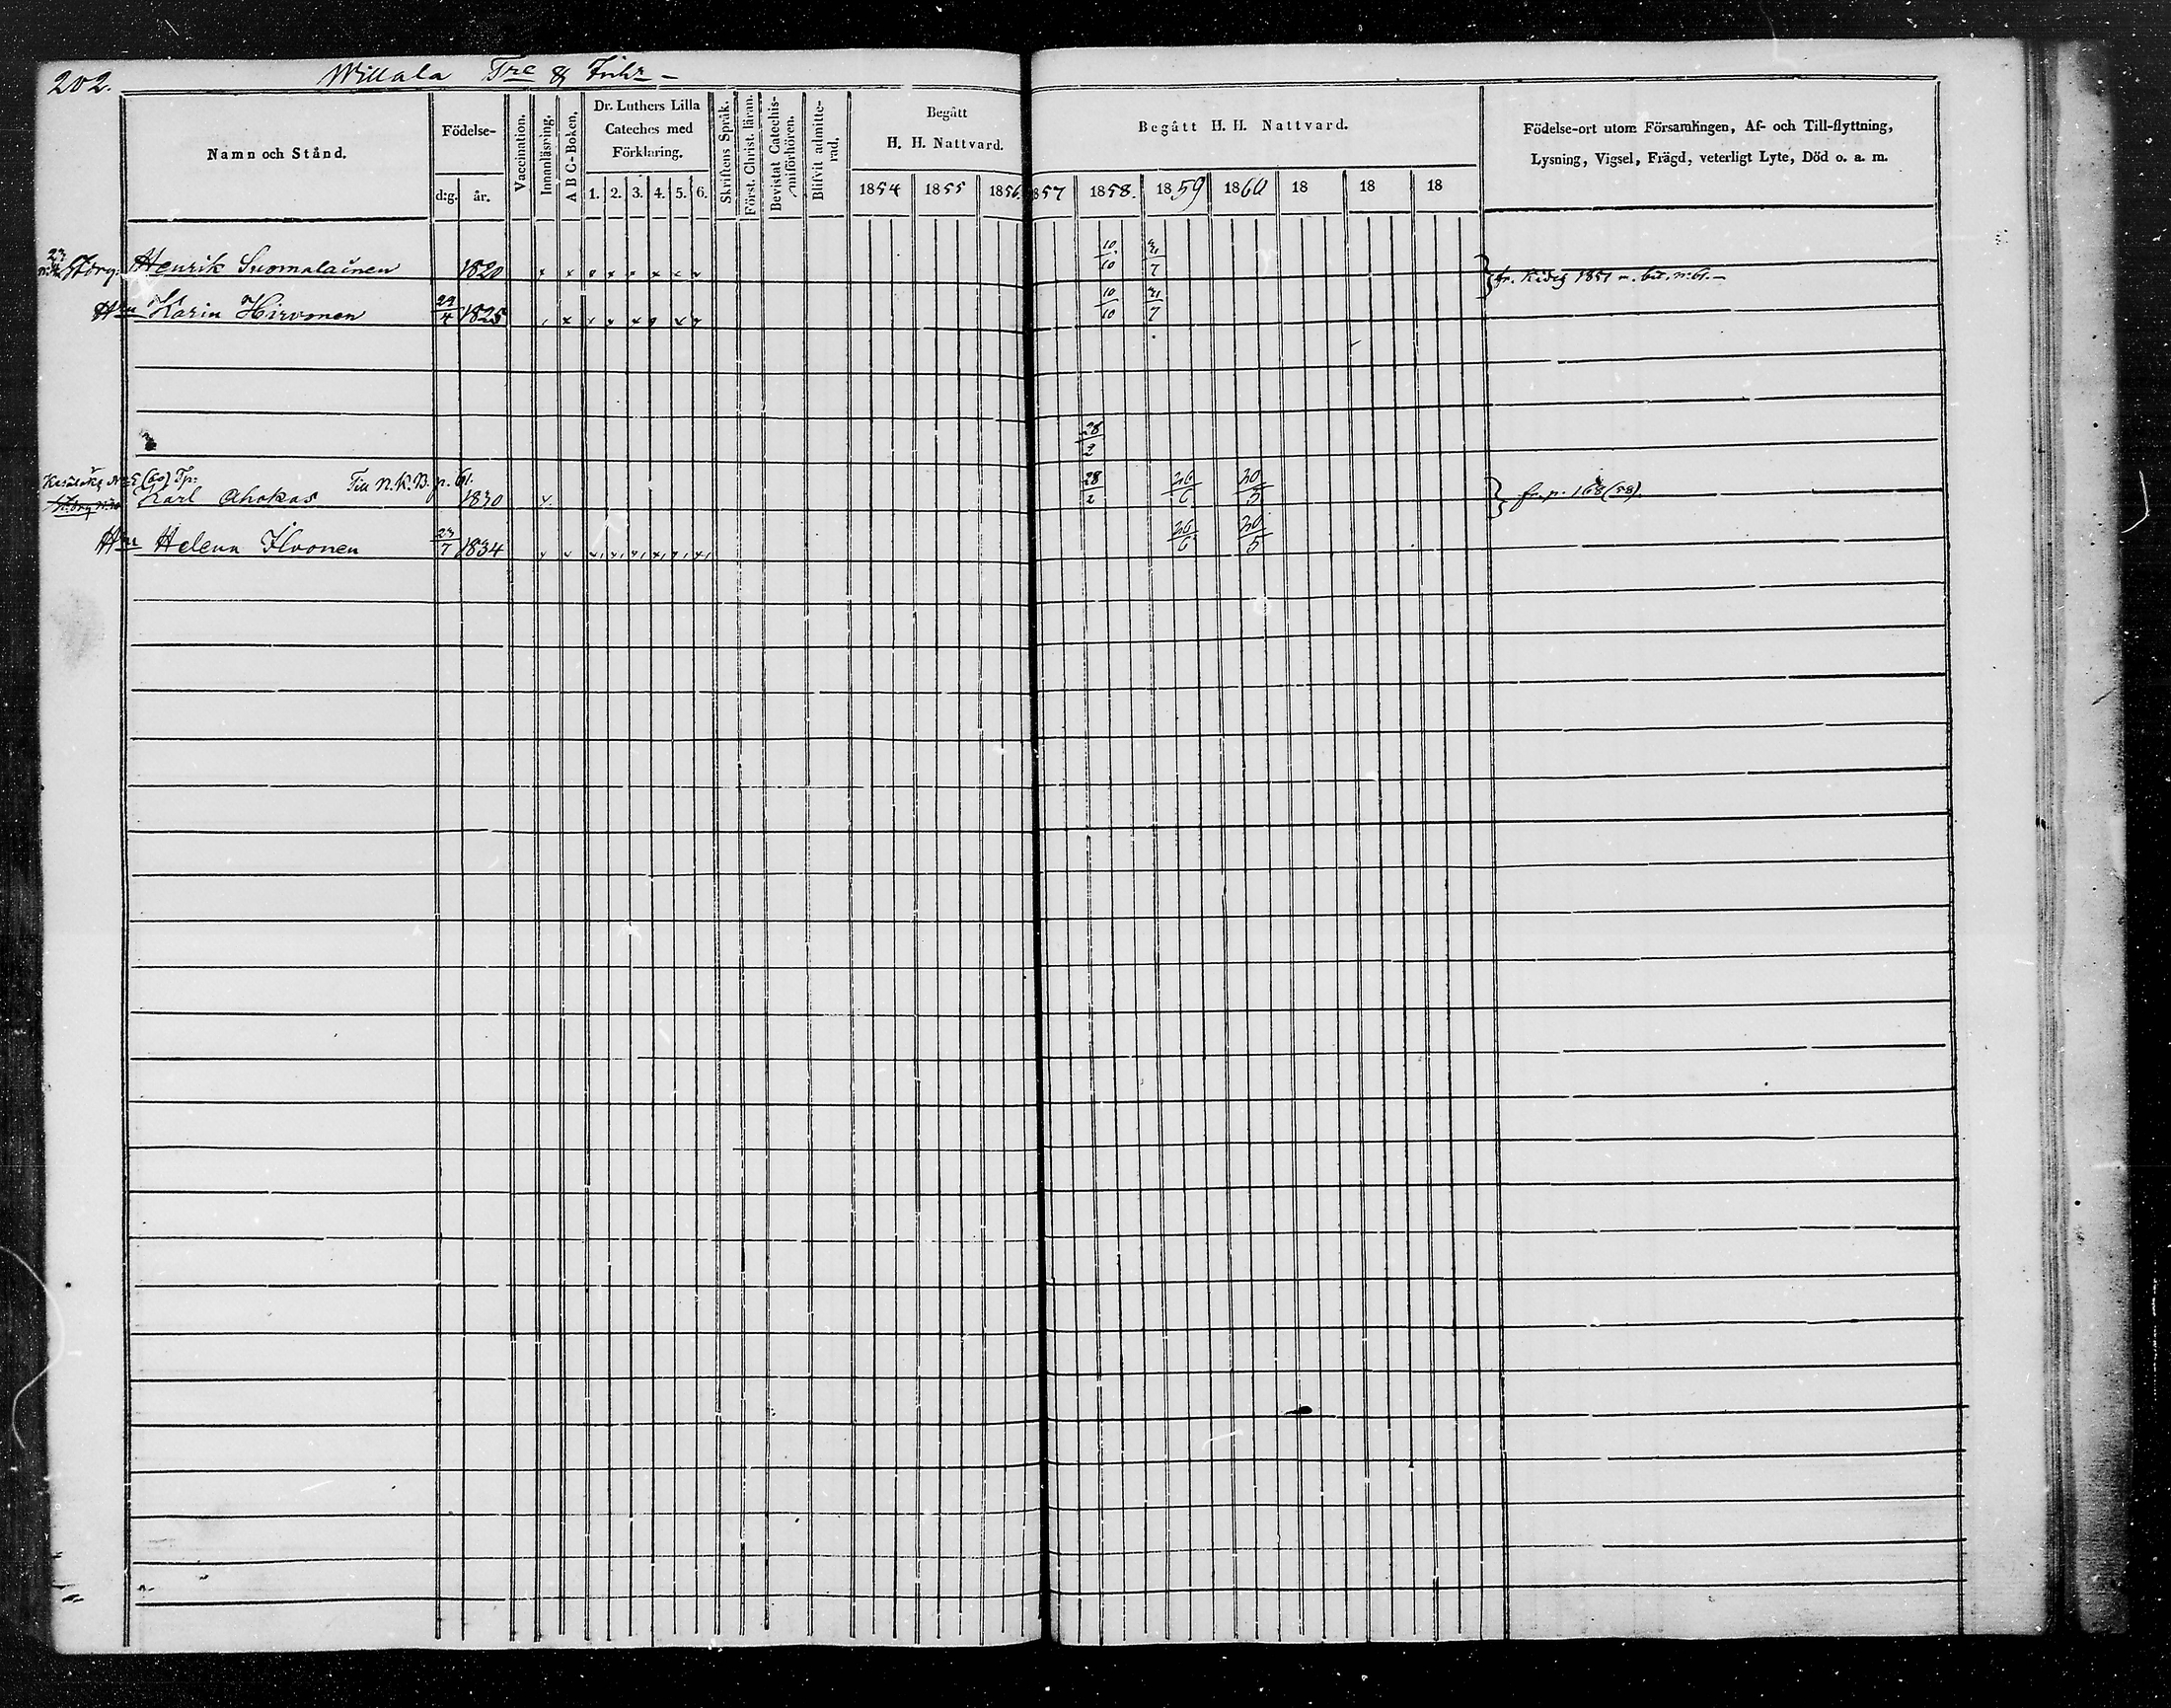 202. Willala Tre & Inhr –
Namn och Stånd.
Födelse-
d:g. år.
Vaccination.
Innanläsning.
A B C-Boken.
Dr. Luthers Lilla
Cateches med
Förklaring.
1. 2. 3. 4. 5. 6.
Skriftens Språk.
Först. Christ. läran.
Bevistat Catechis-
miförhören.
Blifvit admitte-
rad.
Begått
H. H. Nattvard.
1854 1855 1856
Begått H. H. Nattvard.
1857 1858. 1859 1860 18 18 18
Födelse-ort utom Församlingen, Af- och Till-flyttning,
Lysning, Vigsel, Frägd, veterligt Lyte, Död o. a. m.
Henrik Suomalainen 1820 x x x x x x x x 10/10 7 fr. Kides 1851 m. bet. n:61. –
Hru Karin Hirvonen 29/4 1825 x x x x x x x 10/10 7
28/2
Till N.K.B. p. 61.
Karl Ahokas 1830 x 28/2 26/6 30/5 fr. p. 168 (58).
Hru Helena Ilvonen 23/7 1834 26/6 30/5